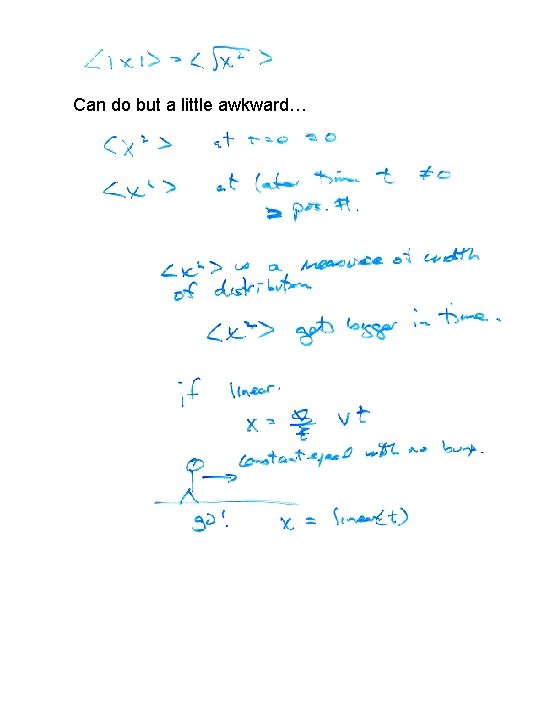 <|x|> = <√x²>
Can do but a little awkward…
<x²> at t=0 = 0
<x²> at later time t ≠0
= pos. #.
<x²> is a measure of width
of distribution
<x²> gets bigger in time.
if linear.
x = vt
constant speed with no bump.
go!
x = linear(t)